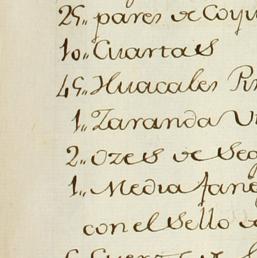 25,, pares de Coyu
10,, Cuartas
45,, Huacales
1,, Zaranda
2,, ozes de Seg
1,, Media fane
con el Sello